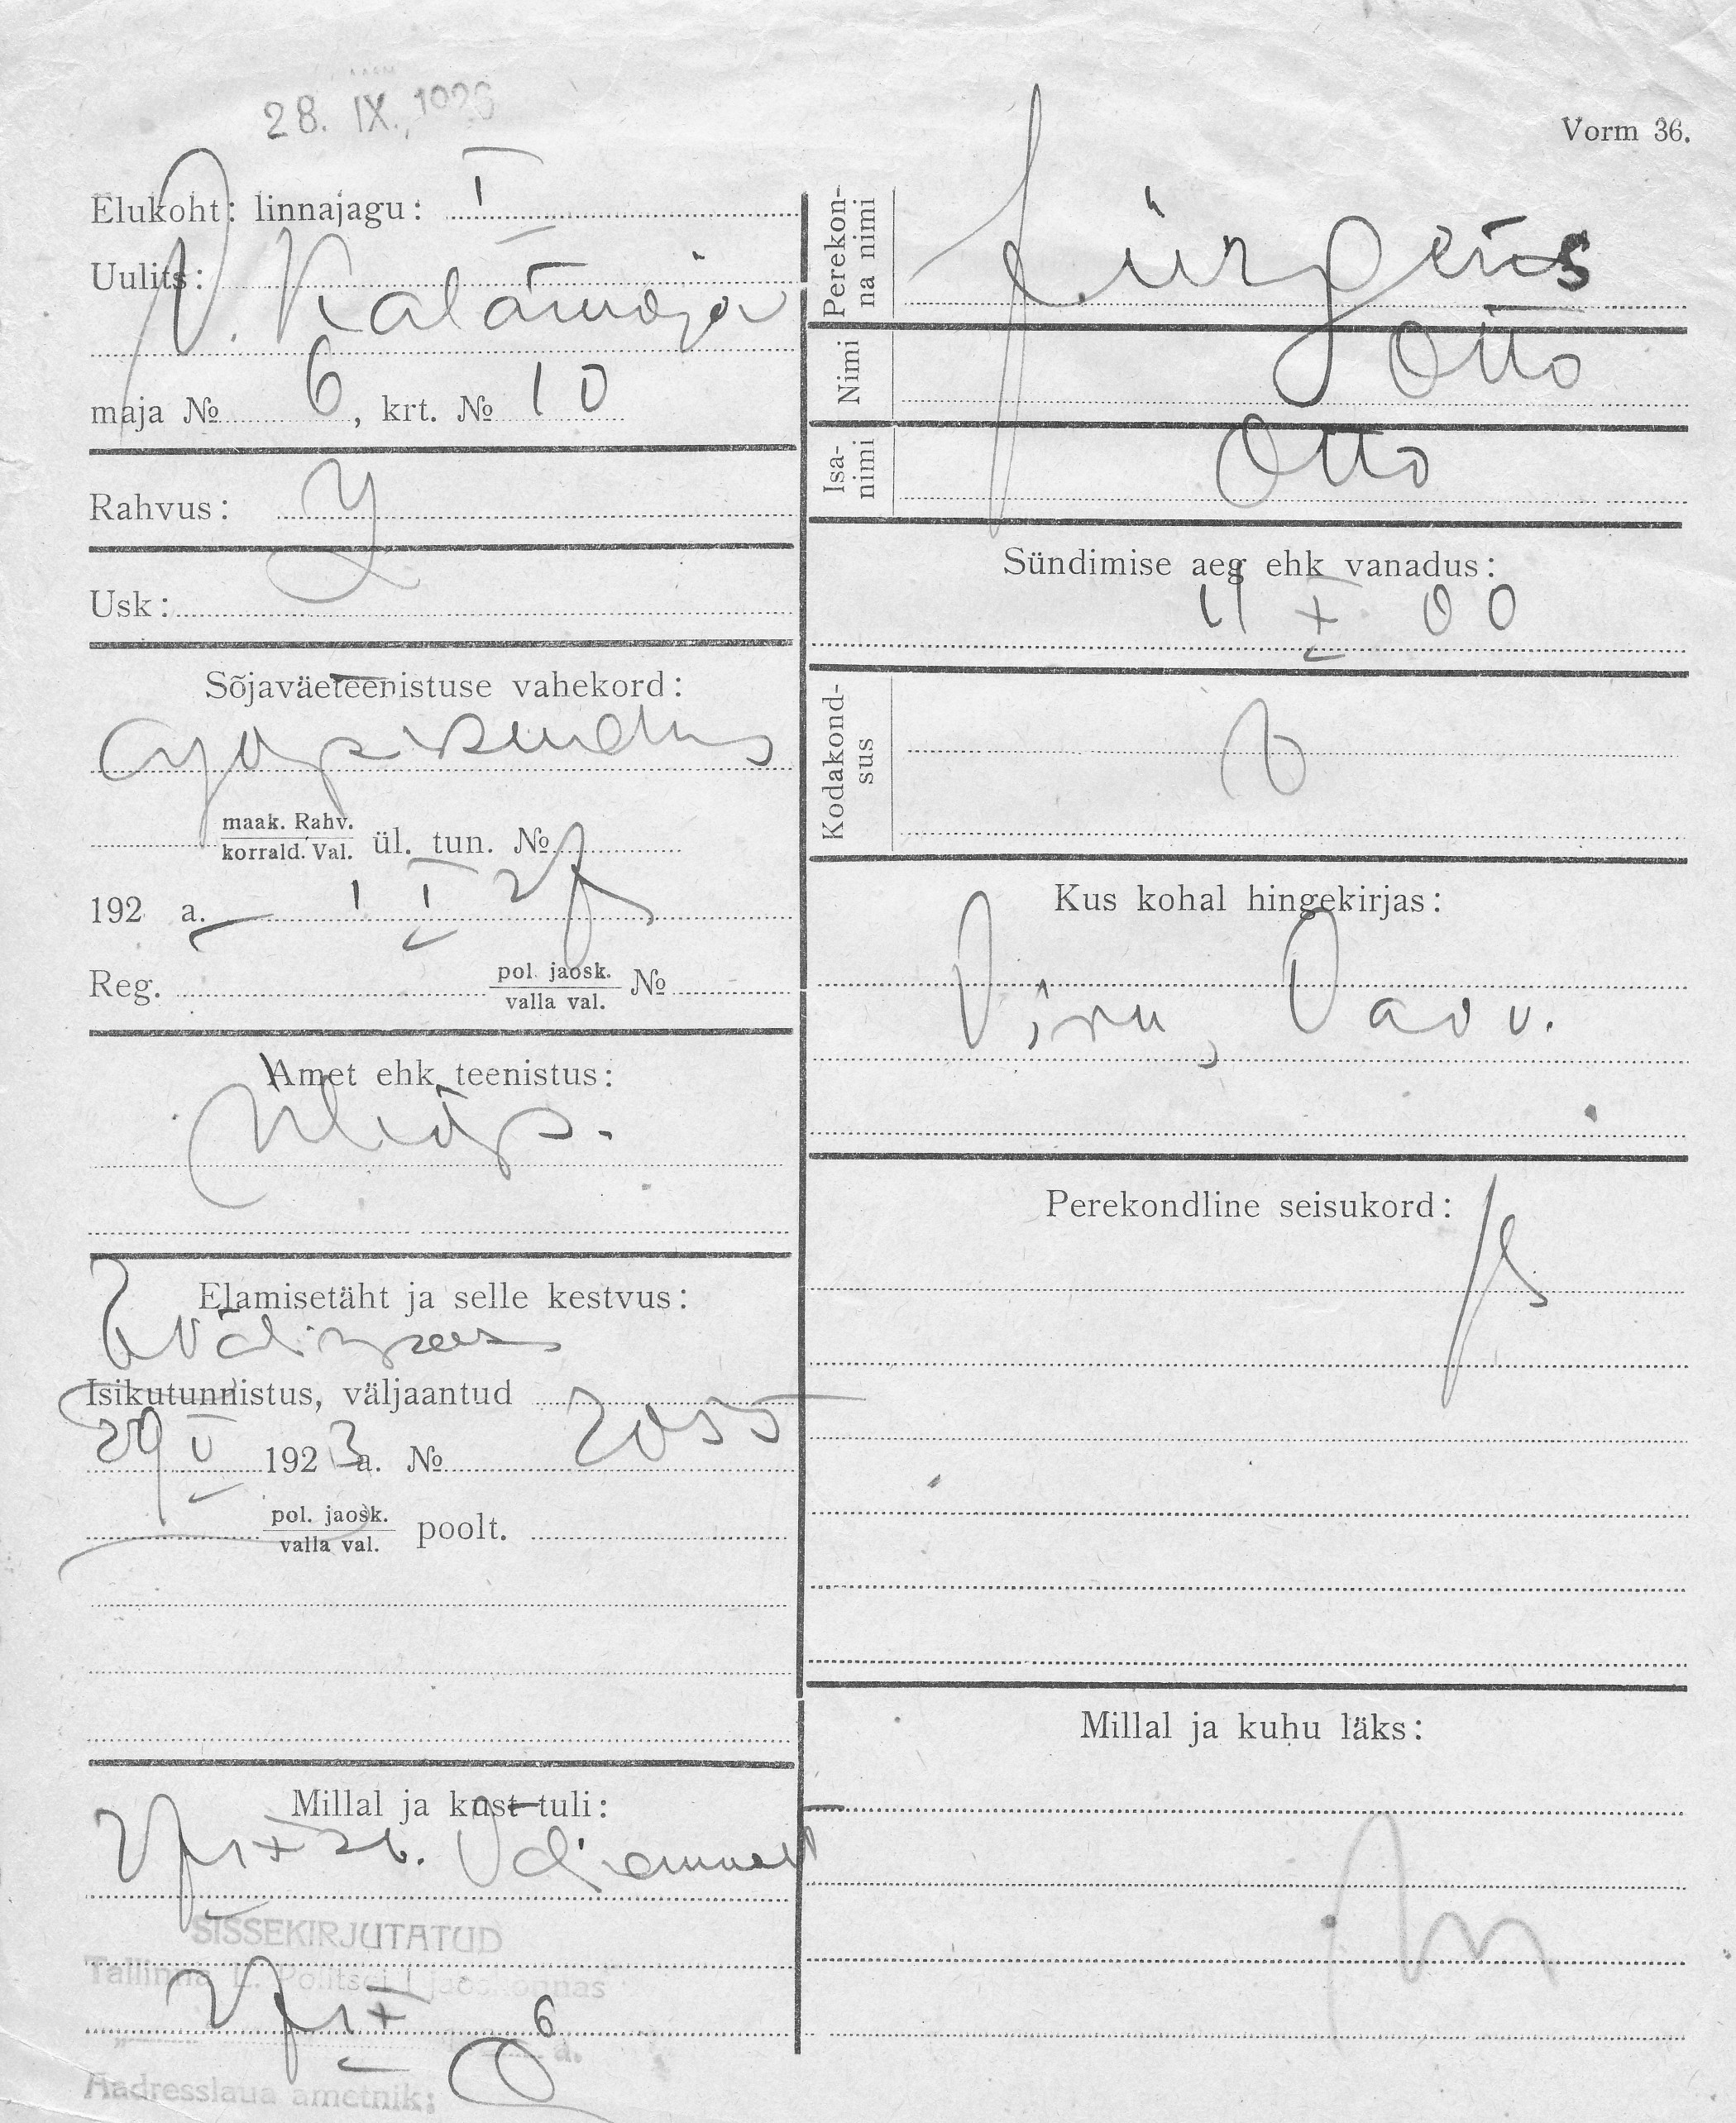 28. IX. 1926
Vorm 36.
Elukoht: linnajagu: I
Uulits: V. Kalamaja
maja № 6, krt. № 10
Rahvus:
Usk:
Sõjaväeteenistuse vahekord:
ajapikendus
maak. Rahv.
korrald. Val. ül. tun. №
192 a. 1 I 27
Reg. pol. jaosk.
valla val. №
Amet ehk teenistus:
üliõp.
Elamisetäht ja selle kestvus:
Isikutunnistus, väljaantud
29 V 1923 a. № 2055
pol. jaosk.
valla val. poolt.
Millal ja kust tuli:
27 IX 26.
SISSEKIRJUTATUD
Tallinna L. Politsei I jaoskonnas
27 IX 6
a.
Aadresslaua ametnik:
Perekon-
na nimi
Jürgens
Nimi
Otto
Isa-
nimi
Otto
Sündimise aeg ehk vanadus:
11 X 00
Kodakond-
sus
Kus kohal hingekirjas:
Viru, Vao v.
Perekondline seisukord:
Millal ja kuhu läks: